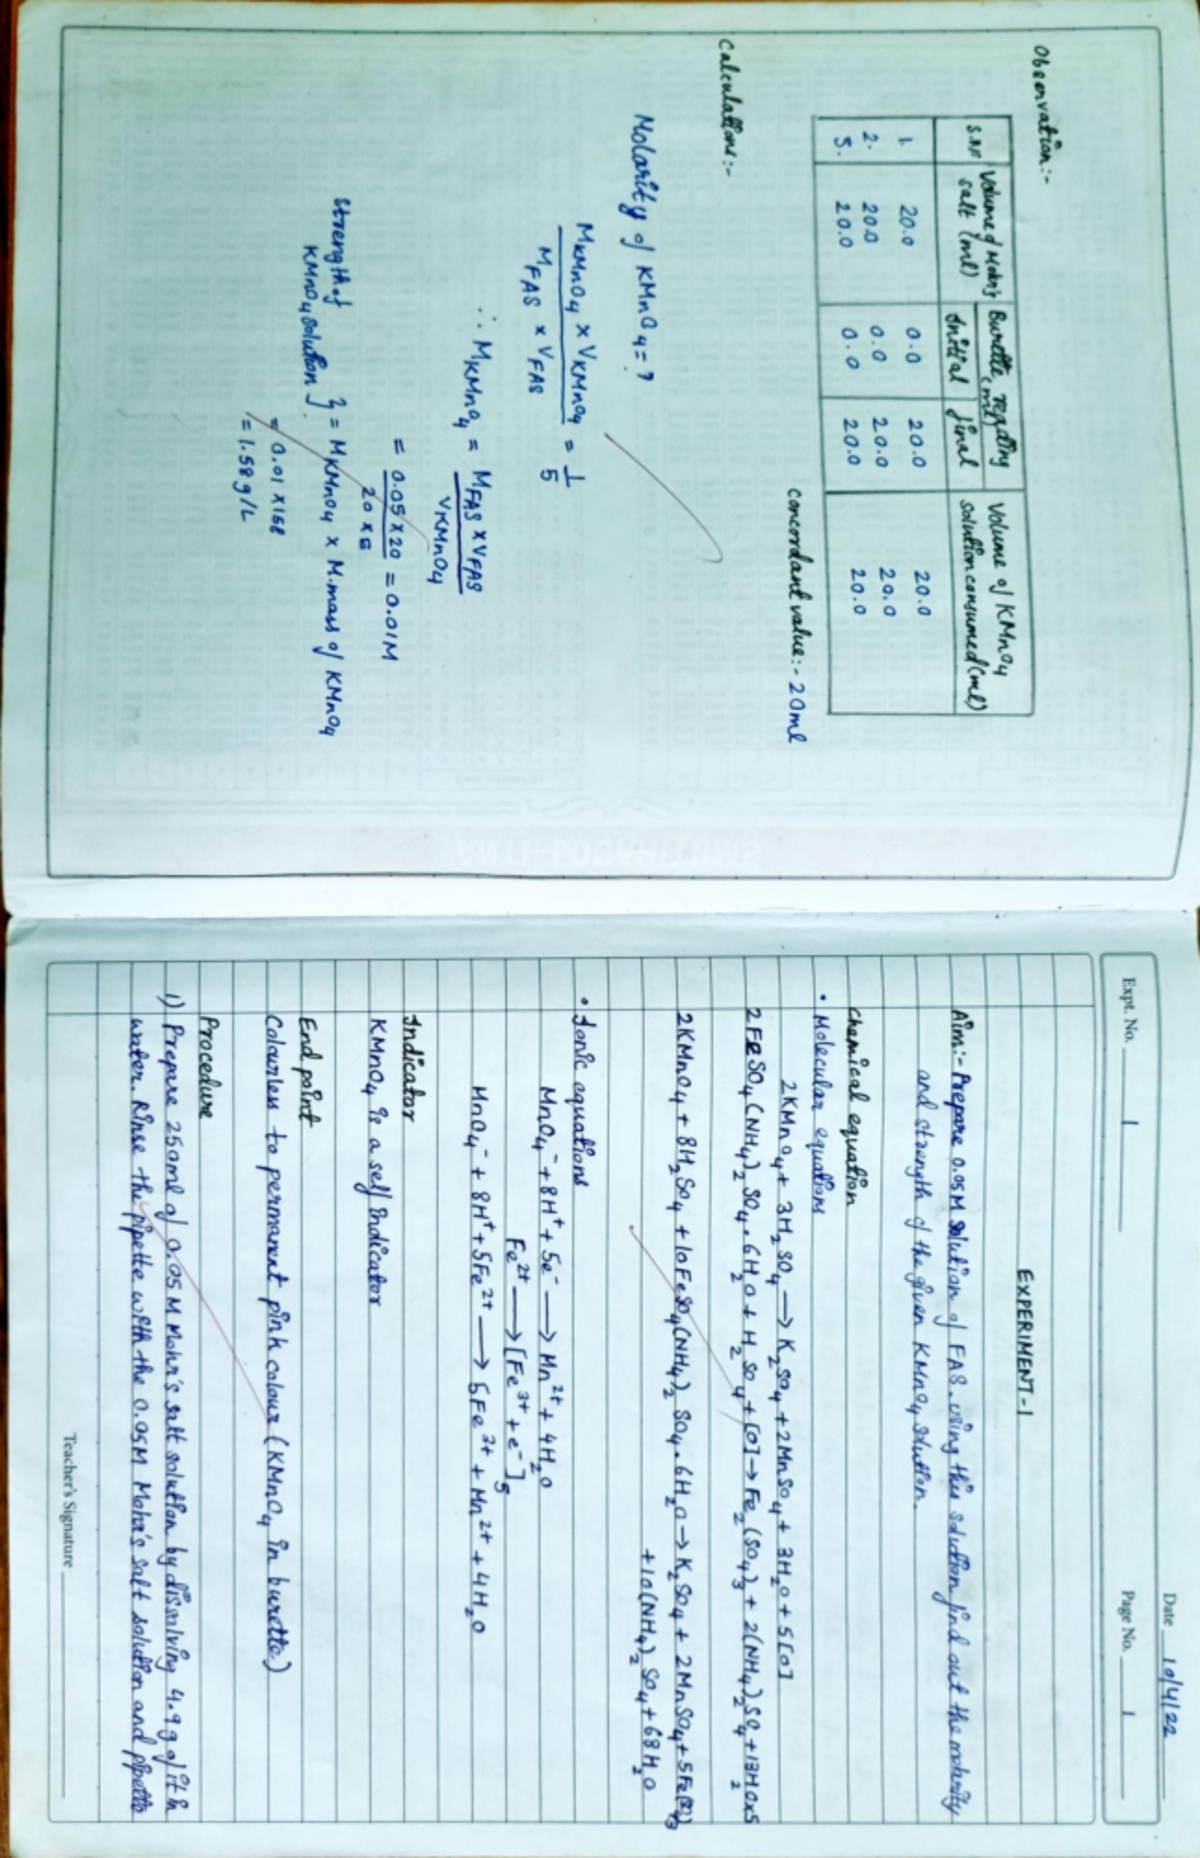 Observation:-
S.No
Volume of Mohr's salt (ml)
Burette reading (ml)
Initial
final
Volume of KMnO4 solution consumed (ml)
1. 20.0 0.0 20.0 20.0
2. 20.0 0.0 20.0 20.0
3. 20.0 0.0 20.0 20.0
Concordant value:- 20ml
Calculations:-
Molarity of KMnO4 = ?
MKMnO4 × VKMnO4 / MFAS × VFAS = 1/5
∴ MKMnO4 = MFAS × VFAS / VKMnO4
= 0.05 × 20 / 20 × 5 = 0.01M
Strength of KMnO4 solution } = MKMnO4 × M.mass of KMnO4
= 0.01 × 158
= 1.58 g/L
Date 10/4/22
Expt. No. 1
Page No. 1
EXPERIMENT-1
Aim:- Prepare 0.05M solution of FAS. using this solution find out the molarity
and strength of the given KMnO4 solution.
Chemical equation
• Molecular equations
2KMnO4 + 3H2SO4 → K2SO4 + 2MnSO4 + 3H2O + 5[O]
2FeSO4(NH4)2SO4.6H2O + H2SO4 + [O] → Fe2(SO4)3 + 2(NH4)2SO4 + 13H2O×5
2KMnO4 + 8H2SO4 + 10FeSO4(NH4)2SO4.6H2O → K2SO4 + 2MnSO4 + 5Fe2(SO4)3
+ 10(NH4)2SO4 + 68H2O
• Ionic equations
MnO4- + 8H+ + 5e- → Mn2+ + 4H2O
Fe2+ → [Fe3+ + e-]5
MnO4- + 8H+ + 5Fe2+ → 5Fe3+ + Mn2+ + 4H2O
Indicator
KMnO4 is a self indicator
End point
Colourless to permanent pink colour (KMnO4 in burette)
Procedure
1) Prepare 250ml of 0.05M Mohr's salt solution by dissolving 4.9g of it in
water. Rinse the pipette with the 0.05M Mohr's salt solution and pipette
Teacher's Signature